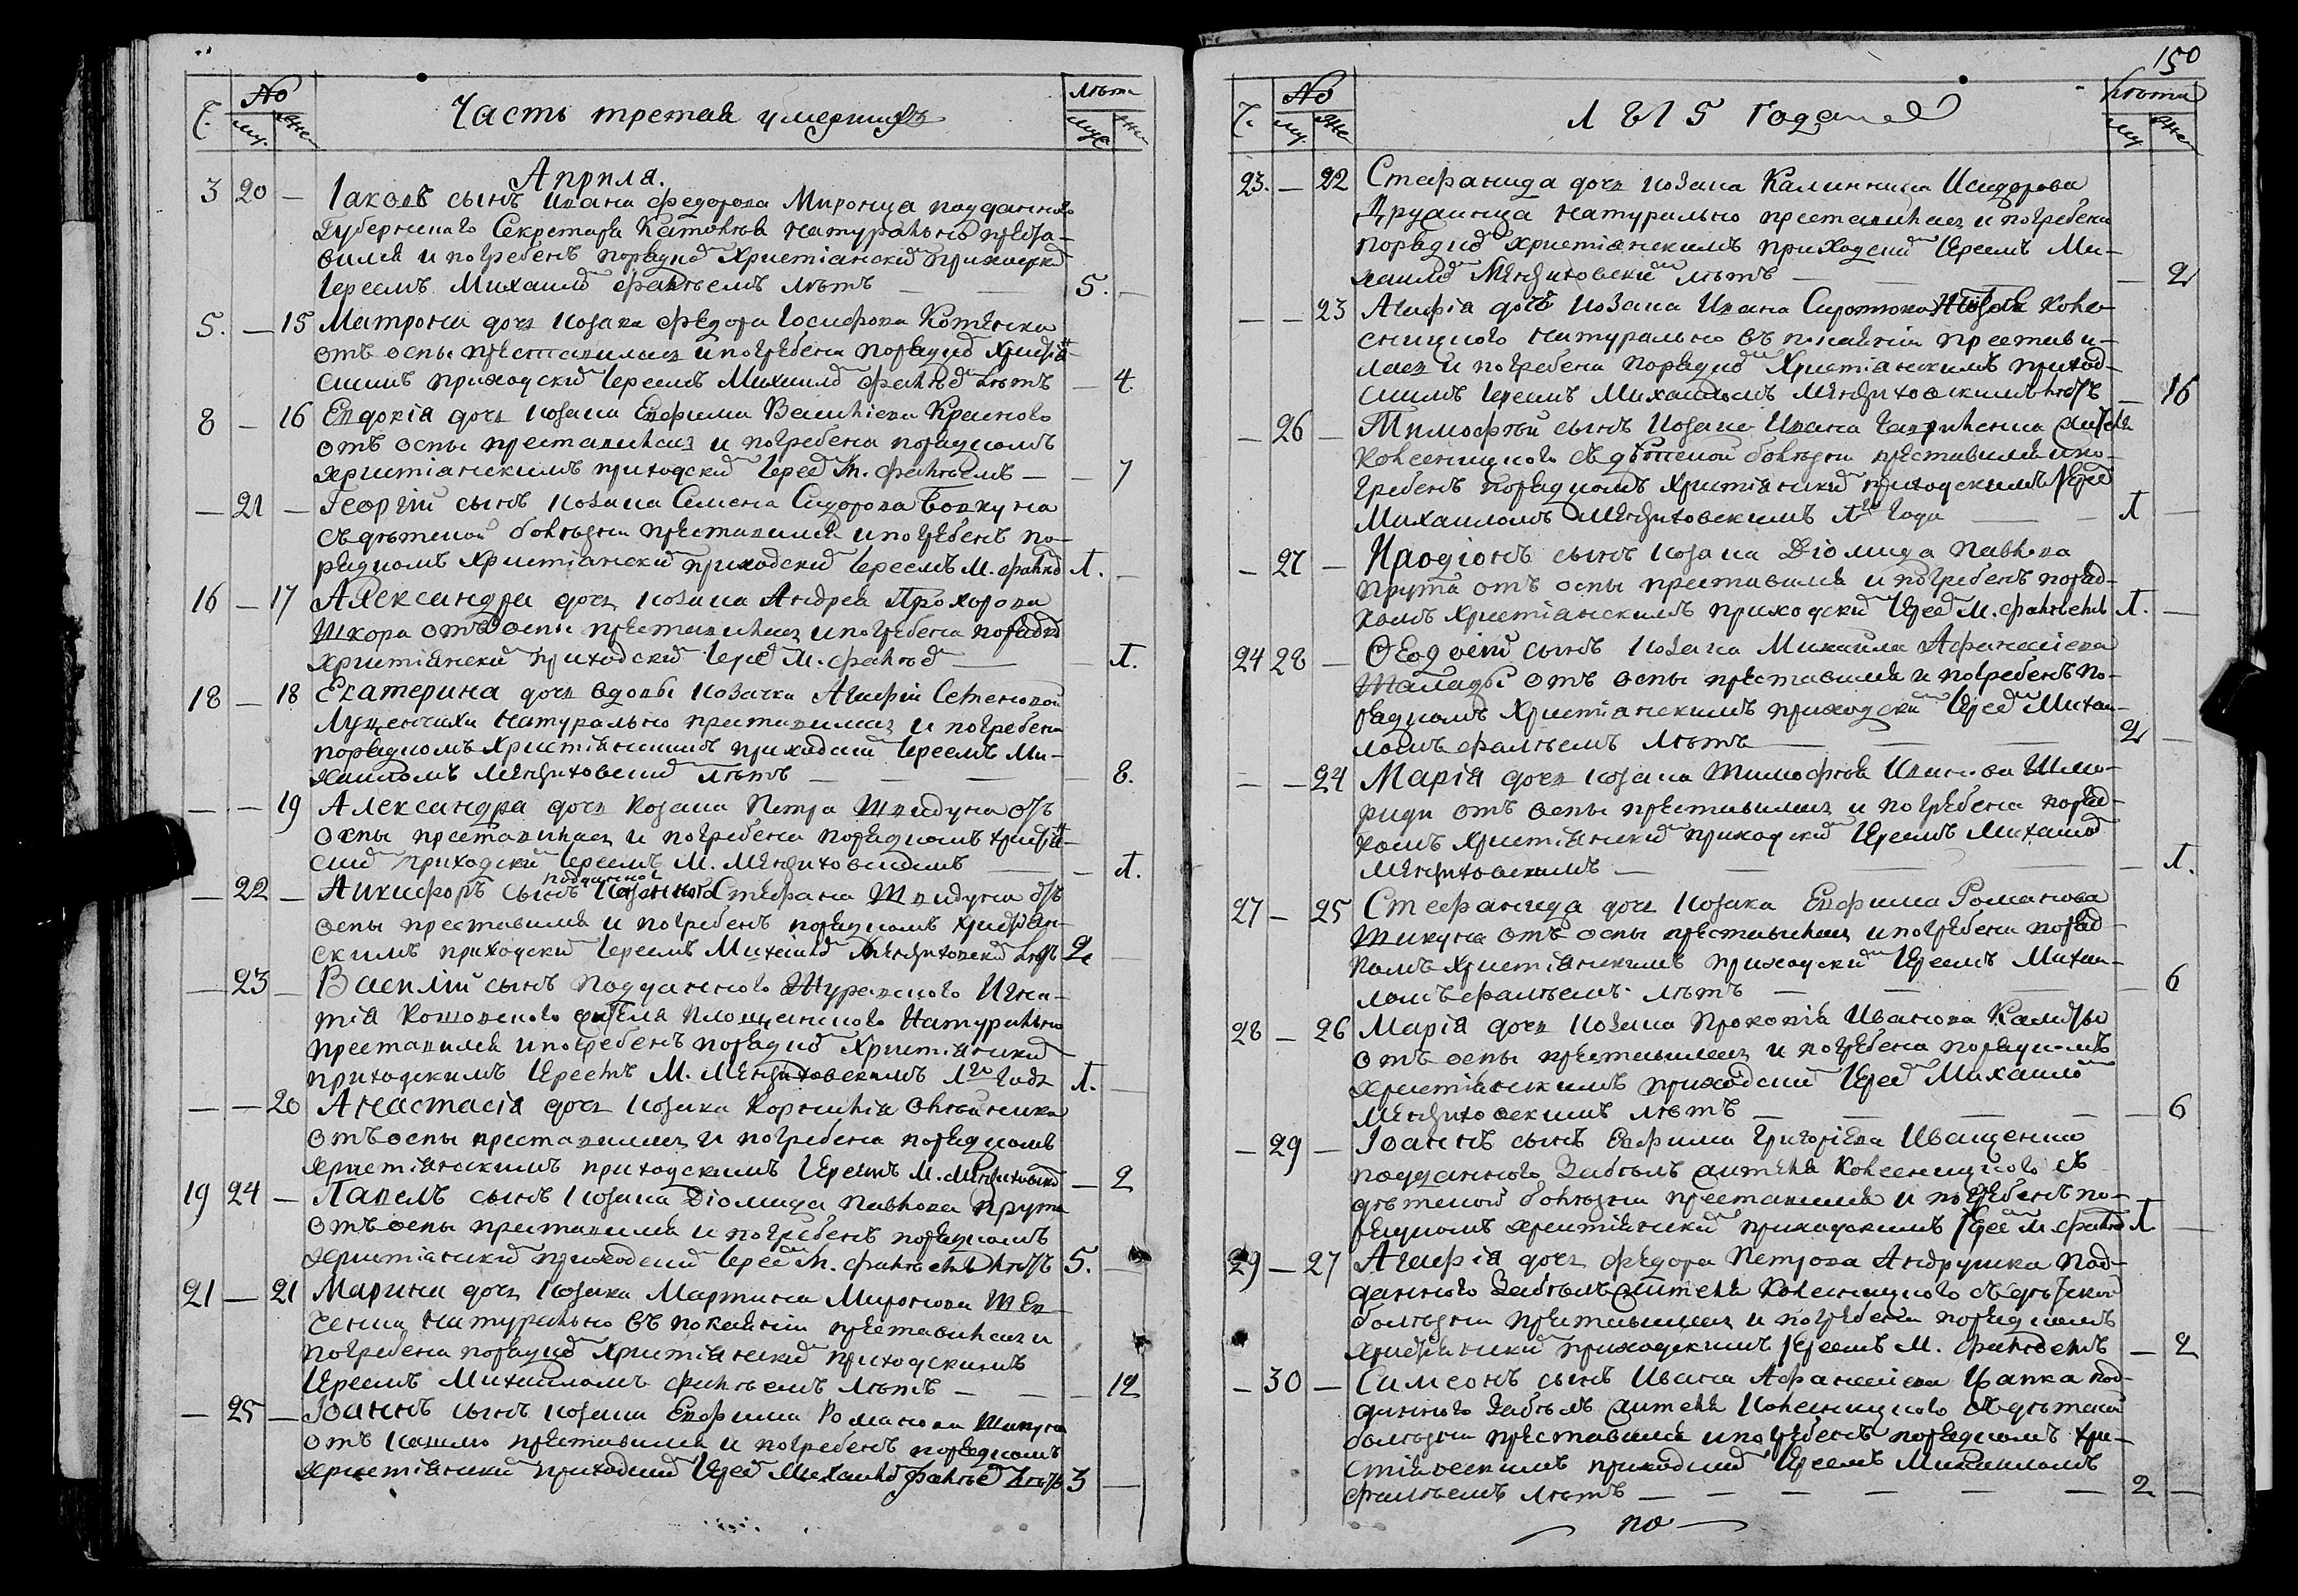 Часть третая умершихъ
Ч. № му. жен
лѣта муж жен
Апрпля.
3 20 — Іаковъ сынъ Ивана Федорова Миронца подданного
Губернского Секретаря натурально преста-
вился и погребенъ порядко Христіански приходски
Іереемъ Михаило Фалѣемъ лѣтъ — 5. —
5. — 15 Матрона дочь козака Федора Іосифова Котенка
отъ оспы преставилась и погребена порядко Христіан-
скимъ приходски Іереемъ Михаило Фалѣе лѣтъ — 4.
8 — 16 Евдокія дочь козака Евфима Василіева Красного
отъ оспы преставилась и погребена порядкомъ
христіанскимъ приходски Іерее М. Фалѣемъ — — 7
— 21 — Георгій сынъ козака Семена Сидорова Бовкуна
съ дѣтской болѣзни преставился и погребенъ по-
рядкомъ Христіански приходски Іереемъ М. Фалѣе 1. —
16 — 17 Александра дочь козака Андрея Прохорова
Шкора отъ оспы преставилась и погребена порядко
христіански приходски Іерее М. Фалѣе — — 1.
18 — 18 Екатерина дочь вдовы козачки Агафіи Семеновой
Луценчихи натурально преставилась и погребена
порядкомъ Христіанскимъ приходски Іереемъ Ми-
хаиломъ Мензиховски лѣтъ — — — 8.
— — 19 Александра дочь козака Петра Шпидуна отъ
оспы преставилась и погребена порядкомъ христіан-
ски приходски Іереемъ М. Мензиховскимъ — 1.
подданного
— 22 — Никифоръ сынъ Стефана Шпидуна отъ
оспы преставился и погребенъ порядкомъ христіан-
скимъ приходски Іереемъ Михаило Мензиховски лѣтъ 2 —
— 23 — Василій сынъ подданного Журавского Игна-
тія Кошовского жителя Площанского натурально
преставился и погребенъ порядко Христіански
приходскимъ Іереемъ М. Мензиховскимъ 1го года 1. —
— — 20 Анастасія дочь козака Корнилія Олѣйника
отъ оспы преставилась и погребена порядкомъ
христіанскимъ приходскимъ Іереемъ М. Мензиховски — 2
19 24 — Павелъ сынъ козака Діомида Павлова Прута
отъ оспы преставился и погребенъ порядкомъ
христіански приходски Іерее М. Фалѣемъ лѣтъ 5. —
21 — 21 Марина дочь козака Мартина Миронова Шев-
ченка натурально въ покаяніи преставилась и
погребена порядко Христіански приходскимъ
Іереемъ Михаиломъ Фалѣемъ лѣтъ — — — 12
— 25 — Іоаннъ сынъ козака Евфима Романова Шикуна
отъ кашлю преставился и погребенъ порядкомъ
христіански приходски Іерее Михаило Фалѣе лѣтъ 3 —
150
Ч. № му. жен
1815 Года
Лѣта му жен
23. — 22 Стефанида дочь козака Калинника Исидорова
натурально преставилась и погребена
порядко христіанскимъ приходски Іереемъ Ми-
хаило Мензиховски лѣтъ — — 2
— — 23 Агафія дочь козака Ивана Сиротюка
натурально въ покаяніи престави-
лась и погребена порядко Христіанскимъ приход-
скимъ Іереемъ Михаиломъ Мензиховскимъ лѣтъ — 16
— 26 — Тимофей сынъ козака Ивана Гавриленка жителя
съ дѣтской болѣзни преставился и по-
гребенъ порядкомъ христіански приходскимъ Іерее
Михаиломъ Мензиховскимъ 1го года — — 1 —
— 27 — Иродіонъ сынъ козака Діомида Павлова
Прута отъ оспы преставился и погребенъ поряд-
комъ христіанскимъ приходски Іерее М. Фалѣемъ 1. —
24 28 — Ѳеодосій сынъ козака Михаила Афанасіева
Шалады отъ оспы преставился и погребенъ по-
рядкомъ Христіанскимъ приходски Іерее Михаи-
ломъ Фалѣемъ лѣтъ — — — 2 —
— — 24 Марія дочь козака Тимофѣя Иванова
отъ оспы преставилась и погребена поряд-
комъ Христіански приходски Іереемъ Михаило
Мензиховскимъ — — — — 1.
27 — 25 Стефанида дочь козака Евфима Романова
Шикуна отъ оспы преставилась и погребена поряд-
комъ Христіанскимъ приходски Іереемъ Михаи-
ломъ Фалѣемъ лѣтъ — — — — 6
28 — 26 Марія дочь козака Прокопія Иванова
отъ оспы преставилась и погребена порядкомъ
христіанскимъ приходски Іерее Михаило
Мензиховскимъ лѣтъ — — — — 6
— 29 — Іоаннъ сынъ Евфима Григоріева Иващенка
подданного Забѣлъ жителя съ
дѣтской болѣзни преставился и погребенъ по-
рядкомъ христіански приходскимъ Іерее М. Фалѣе 1 —
29 — 27 Агафія дочь Федора Петрова Андрушка под-
данного Забѣлъ жителя съ дѣтской
болѣзни преставилась и погребена порядкомъ
христіански приходскимъ Іереемъ М. Фалѣемъ — 2
— 30 — Симеонъ сынъ Ивана Афанасіева Цапка под-
данного Забѣлъ жителя съ дѣтской
болѣзни преставился и погребенъ порядкомъ хри-
стіанскимъ приходски Іереемъ Михаиломъ
Фалѣемъ лѣтъ — — — — — 2 —
по